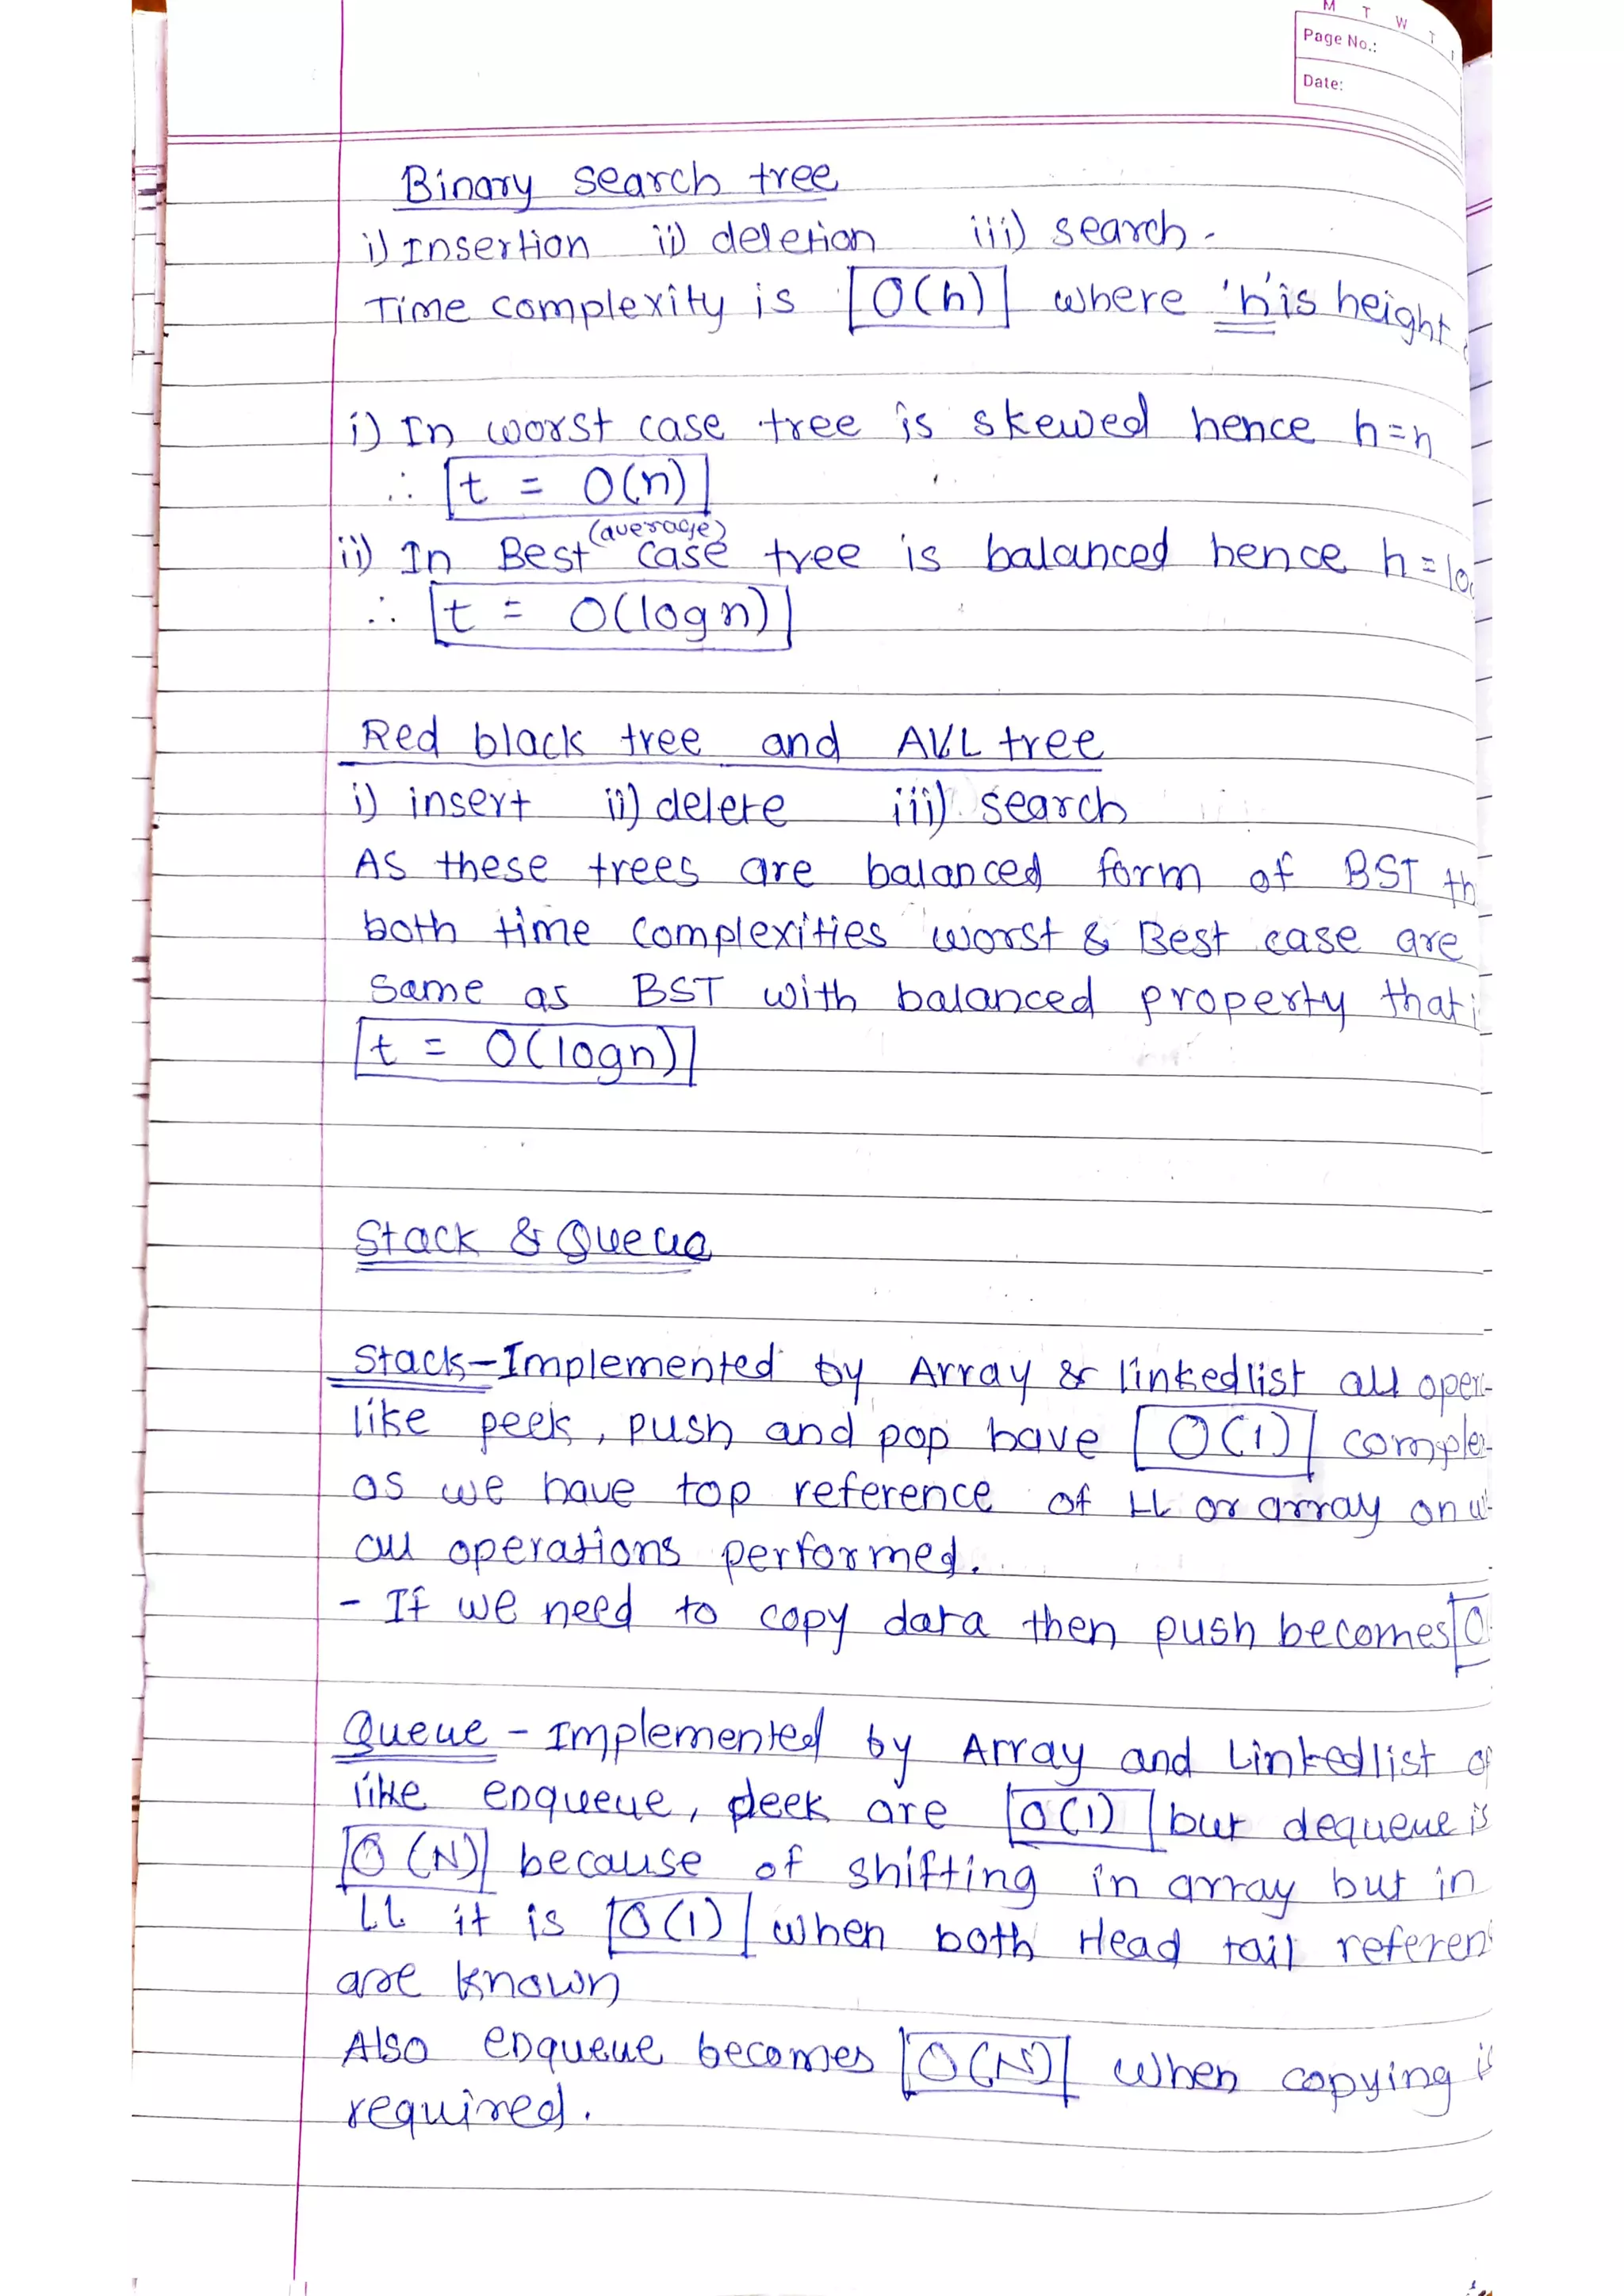 M T W T
Page No.:
Date:
Binary search tree
i) Insertion ii) deletion iii) search.
Time complexity is O(h) where 'h' is height
i) In worst case tree is skewed hence h=n
∴ t = O(n)
(average)
ii) In Best case tree is balanced hence h=lo
∴ t = O(logn)
Red black tree and AVL tree
i) insert ii) delete iii) search
As these trees are balanced form of BST th
both time complexities worst & Best case are
same as BST with balanced property that i
t = O(logn)
Stack & Queue
Stack - Implemented by Array & linkedlist all oper
like peek, push and pop have O(1) comple
as we have top reference of LL or array on w
all operations performed.
- If we need to copy data then push becomes O
Queue - Implemented by Array and Linkedlist
like enqueue, peek are O(1) but dequeue is
O(N) because of shifting in array but in
LL it is O(1) when both Head tail referen
are known
Also enqueue becomes O(N) when copying i
required.